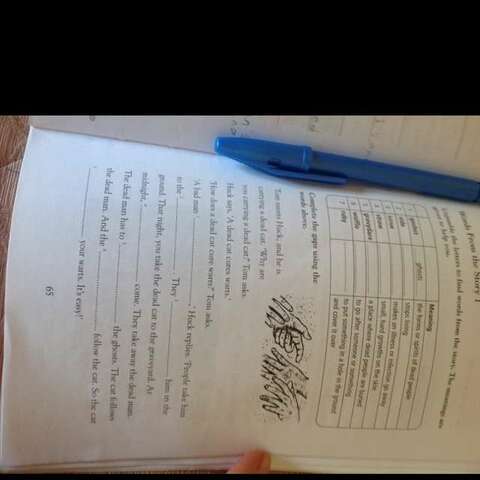 Words From the Story 1
the letters to find words from the story. The meanings are
to help you.
Meaning
1 ghosts
the forms or spirits of dead people
2
stops living
3
makes an illness or infection go away
4
small, hard growths on the skin
5
a place where dead people are buried
6
to go after someone or something
7
to put something in a hole in the ground
and cover it over
Complete the gaps using the
words above.
Tom meets Huck, and he is
carrying a dead cat. 'Why are
you carrying a dead cat?' Tom asks.
Huck says, 'A dead cat cures warts.'
'How does a dead cat cure warts?' Tom asks.
'A bad man ' Huck replies. 'People take him
to the . They him in the
ground. That night, you take the dead cat to the graveyard. At
midnight, come. They take away the dead man.
The dead man has to the ghosts. The cat follows
the dead man. And the follow the cat. So the cat
your warts. It's easy!'
65